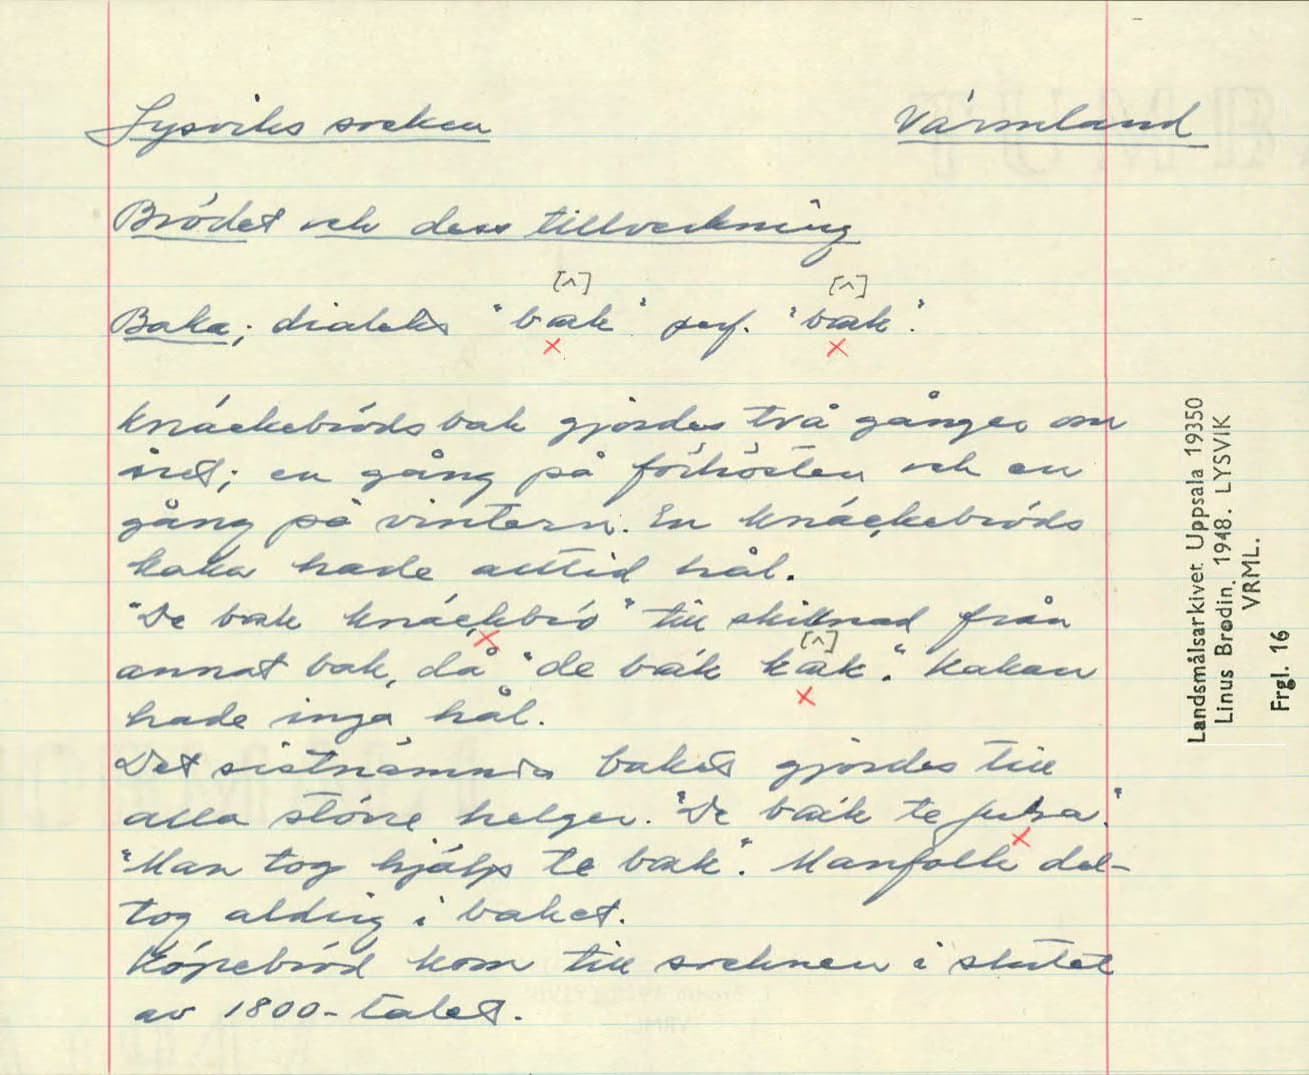 Lysviks socken Värmland
Brödet och dess tillverkning
[^] [^]
Baka; dialekt "bak" perf. "bak".
Knäckebrödsbak gjordes två gånger om
året; en gång på förhösten och en
gång på vintern. En knäckebröds
kaka hade alltid hål.
"De bak knäckbrö" till skillnad från
[^]
annat bak, då "de bak kak". Kakan
hade inga hål.
Det sistnämnda baket gjordes till
alla större helger. "De bak te jula".
"Man tog hjälp te bak". Manfolk del-
tog aldrig i baket.
Köpebröd kom till socknen i slutet
av 1800-talet.
Landsmålsarkivet Uppsala 19350
Linus Brodin. 1948. LYSVIK
VRML.
Frgl. 16